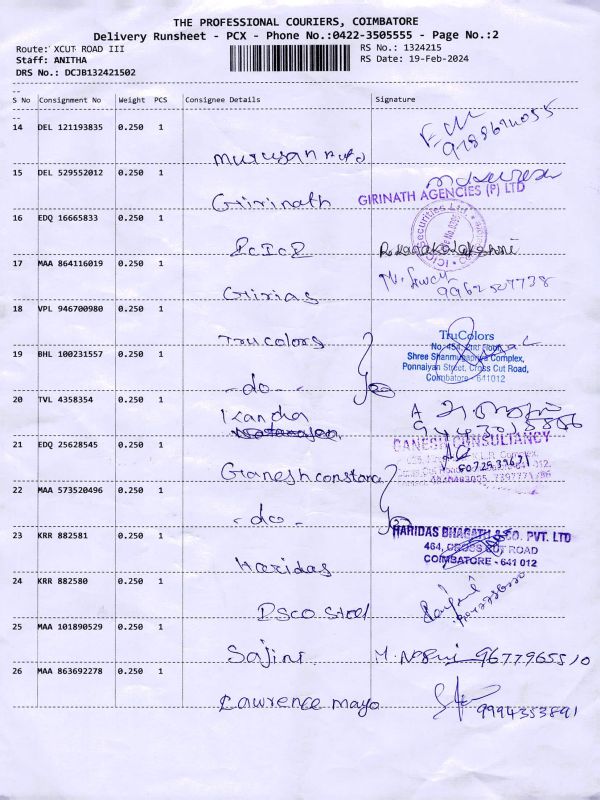 THE PROFESSIONAL COURIERS, COIMBATORE
Delivery Runsheet - PCX - Phone No.:0422-3505555 - Page No.:2
Route: XCUT ROAD III
RS No.: 1324215
Staff: ANITHA
RS Date: 19-Feb-2024
DRS No.: DCJB132421502
S No Consignment No Weight PCS Consignee Details Signature
14 DEL 121193835 0.250 1
Murugan
15 DEL 529552012 0.250 1
Girinath
GIRINATH AGENCIES (P) LTD
16 EDQ 16665833 0.250 1
ICICI
Securities Ltd.
ICICI
17 MAA 864116019 0.250 1
Girias
9962507738
18 VPL 946700980 0.250 1
Trucolors
TruColors
No. 454, 2nd Floor,
Shree Shanmugapriya Complex,
Ponnaiyan Street, Cross Cut Road,
Coimbatore - 641012
19 BHL 100231557 0.250 1
-do-
20 TVL 4358354 0.250 1
Kandha
21 EDQ 25628545 0.250 1
Ganesh constance
GANESH CONSULTANCY
22 MAA 573520496 0.250 1
-do-
23 KRR 882581 0.250 1
Haridas
HARIDAS BHAGATH & CO. PVT. LTD
464, CROSS CUT ROAD
COIMBATORE - 641 012
24 KRR 882580 0.250 1
Steel
25 MAA 101890529 0.250 1
Sajini
9677965510
26 MAA 863692278 0.250 1
Lawrence mayo
9994353891